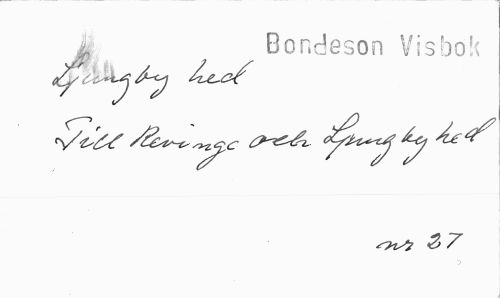 Bondeson Visbok
Ljungby hed
Till Revinge och Ljungby hed
nr 27